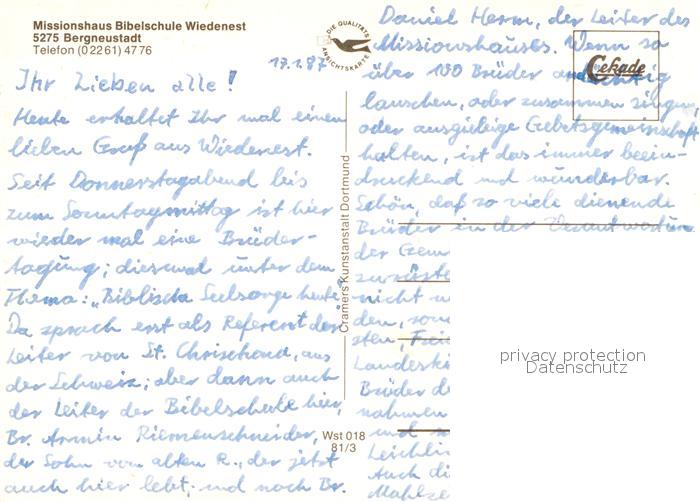 Missionshaus Bibelschule Wiedenest
5275 Bergneustadt
Telefon (0 22 61) 47 76
DIE QUALITÄTS
ANSICHTSKARTE
17.1.87
Ihr Lieben alle!
Heute erhaltet Ihr mal einen
lieben Gruß aus Wiedenest.
Seit Donnerstagabend bis
zum Sonntagmittag ist hier
wieder mal eine Brüder-
tagung; diesmal unter dem
Thema: „Biblische Seelsorge heute“.
Da sprach erst als Referent der
Leiter von St. Chrischona, aus
der Schweiz; aber dann auch
der Leiter der Bibelschule hier,
Br. Armin Riemenschneider,
der Sohn vom alten R., der jetzt
auch hier lebt; und noch Br.
Cramers Kunstanstalt Dortmund
Wst 018
81/3
Daniel Herm, der Leiter des
Missionshauses. Wenn so
über 100 Brüder andächtig
lauschen, oder zusammen singen,
oder ausgiebige Gebetsgemeinschaft
halten, ist das immer beein-
druckend und wunderbar.
Schön, daß so viele dienende
Brüder in der Verantwortung
der Gem
zurüste
nicht
den, son
sten, Frei
Landeski
Brüder d
nahmen
und
Leichlin
Auch di
Mahlze
Cekade
privacy protection
Datenschutz